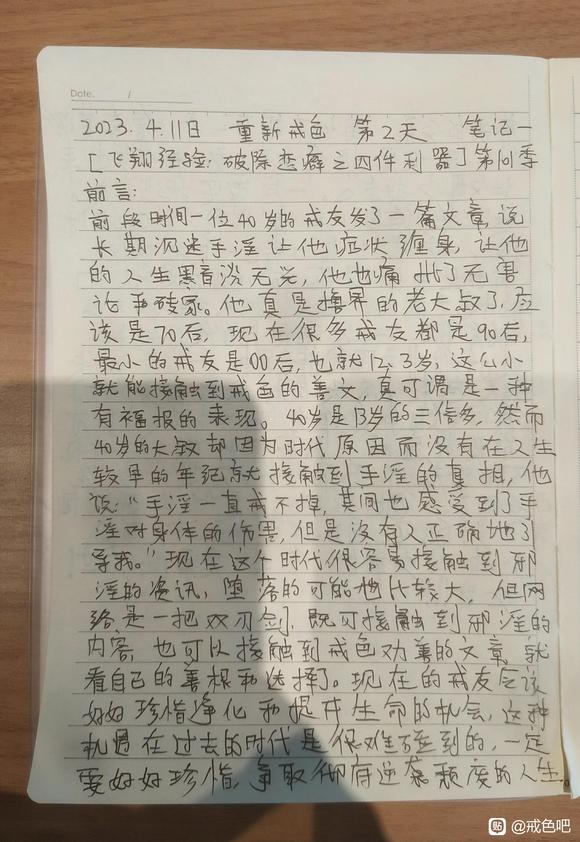 Date.      /
2023.4.11日 重新戒色 第2天 笔记一
[飞翔经验:破除恋癖之四件利器]第101季
前言:
前段时间一位40岁的戒友发了一篇文章,说
长期沉迷手淫让他症状缠身,让他
的人生黑音淡无光,他也痛批了无害
论和砖家。他真是撸界的老大叔了,应
该是70后,现在很多戒友都是90后,
最小的戒友是00后,也就12、3岁,这么小
就能接触到戒色的善文,真可谓是一种
有福报的表现。40岁是13岁的三倍多,然而
40岁的大叔却因为时代原因而没有在人生
较早的年纪就接触到手淫的真相,他
说:“手淫一直戒不掉,其间也感受到了手
淫对身体的伤害,但是没有人正确地引
导我。”现在这个时代很容易接触到邪
淫的资讯,堕落的可能也比较大,但网
络是一把双刃剑,既可接触到邪淫的
内容,也可以接触到戒色劝善的文章,就
看自己的善根和选择了。现在的戒友应该
好好珍惜净化和提升生命的机会,这种
机遇在过去的时代是很难碰到的,一定
要好好珍惜,争取彻底逆袭颓废的人生.
贴 @戒色吧